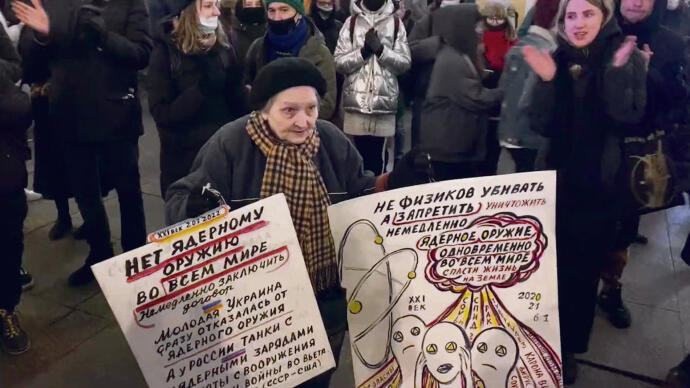 XXI ВЕК 2.01.2022
НЕТ ЯДЕРНОМУ
ОРУЖИЮ
ВО ВСЕМ МИРЕ
НЕМЕДЛЕННО ЗАКЛЮЧИТЬ
ДОГОВОР
МОЛОДАЯ УКРАИНА
СРАЗУ ОТКАЗАЛАСЬ ОТ
ЯДЕРНОГО ОРУЖИЯ
А У РОССИИ ТАНКИ С
ЯДЕРНЫМИ ЗАРЯДАМИ
С ВООРУЖЕНИЯ
ВОЙНЫ ВО ВЬЕТ
(СССР-США)
НЕ ФИЗИКОВ УБИВАТЬ
А (ЗАПРЕТИТЬ) УНИЧТОЖИТЬ
НЕМЕДЛЕННО
ЯДЕРНОЕ ОРУЖИЕ
ОДНОВРЕМЕННО
ВО ВСЕМ МИРЕ
СПАСТИ ЖИЗНЬ
НА ЗЕМЛЕ
XXI
ВЕК
2020
21
СПИД